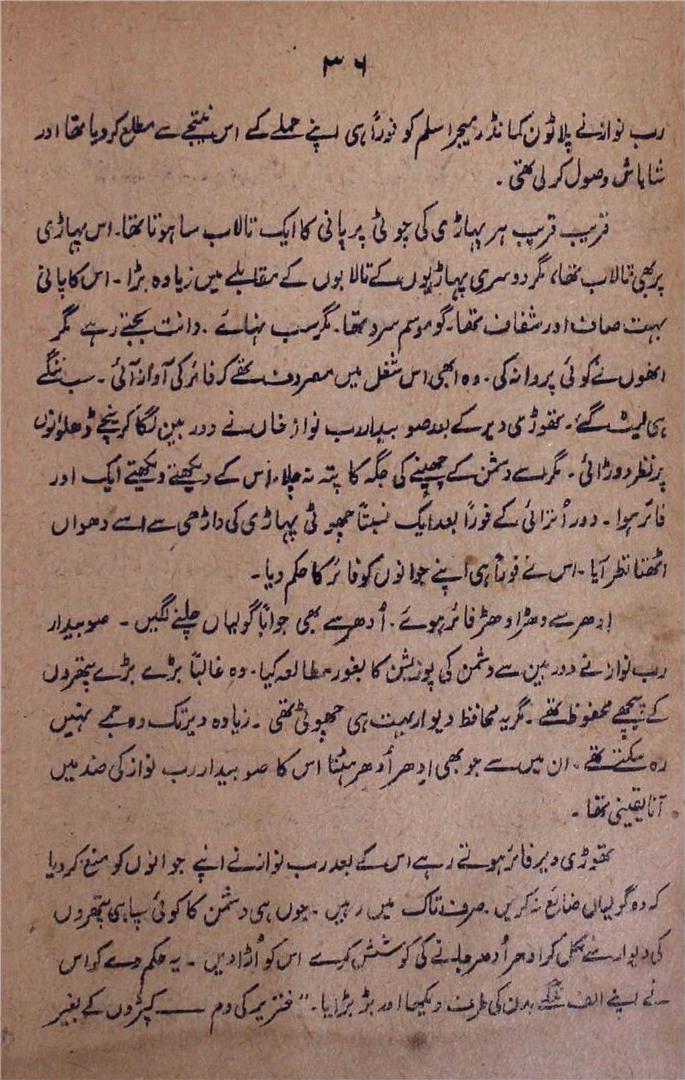 ۳۶
رب نواز نے پلاٹون کمانڈر میجر اسلم کو فوراً ہی اپنے حملے کے اس نتیجے سے مطلع کر دیا تھا اور
شاباش وصول کر لی تھی۔
قریب قریب ہر پہاڑی کی چوٹی پر پانی کا ایک تالاب سا ہوتا تھا۔ اس پہاڑی
پر بھی تالاب تھا، مگر دوسری پہاڑیوں کے تالابوں کے مقابلے میں زیادہ بڑا۔ اس کا پانی
بہت صاف اور شفاف تھا۔ گو موسم سرد تھا۔ مگر سب نہائے۔ دانت بجتے رہے مگر
انھوں نے کوئی پروا نہ کی۔ وہ ابھی اس شغل میں مصروف تھے کہ فائر کی آواز آئی۔ سب ننگے
ہی لیٹ گئے۔ تھوڑی دیر کے بعد صوبیدار رب نواز خاں نے دوربین لگا کر نیچے ڈھلوانوں
پر نظر دوڑائی۔ مگر اسے دشمن کے چھپنے کی جگہ کا پتہ نہ چلا۔ اس کے دیکھتے دیکھتے ایک اور
فائر ہوا۔ دور اُترائی کے فوراً بعد ایک نسبتاً چھوٹی پہاڑی کی داڑھی سے اسے دھواں
اٹھتا نظر آیا۔ اس نے فوراً ہی اپنے جوانوں کو فائر کا حکم دیا۔
اِدھر سے دھڑا دھڑ فائر ہوئے۔ اُدھر سے بھی جواباً گولیاں چلنے لگیں۔ صوبیدار
رب نواز نے دوربین سے دشمن کی پوزیشن کا بغور مطالعہ کیا۔ وہ غالباً بڑے بڑے پتھروں
کے پیچھے محفوظ تھے۔ مگر یہ محافظ دیوار بہت ہی چھوٹی تھی۔ زیادہ دیر تک وہ جمے نہیں
رہ سکتے تھے۔ ان میں سے جو بھی اِدھر اُدھر ہٹتا اس کا صوبیدار رب نواز کی ضد میں
آنا یقینی تھا۔
تھوڑی دیر فائر ہوتے رہے اس کے بعد رب نواز نے اپنے جوانوں کو منع کر دیا
کہ وہ گولیاں ضائع نہ کریں۔ صرف تاک میں رہیں۔ جوں ہی دشمن کا کوئی سپاہی پتھروں
کی دیوار سے نکل کر ادھر اُدھر جانے کی کوشش کرے اس کو اُڑا دیں۔ یہ حکم دے کر اس
نے اپنے الف ننگے بدن کی طرف دیکھا اور بڑبڑایا۔ "خنزیر کی دم — کپڑوں کے بغیر